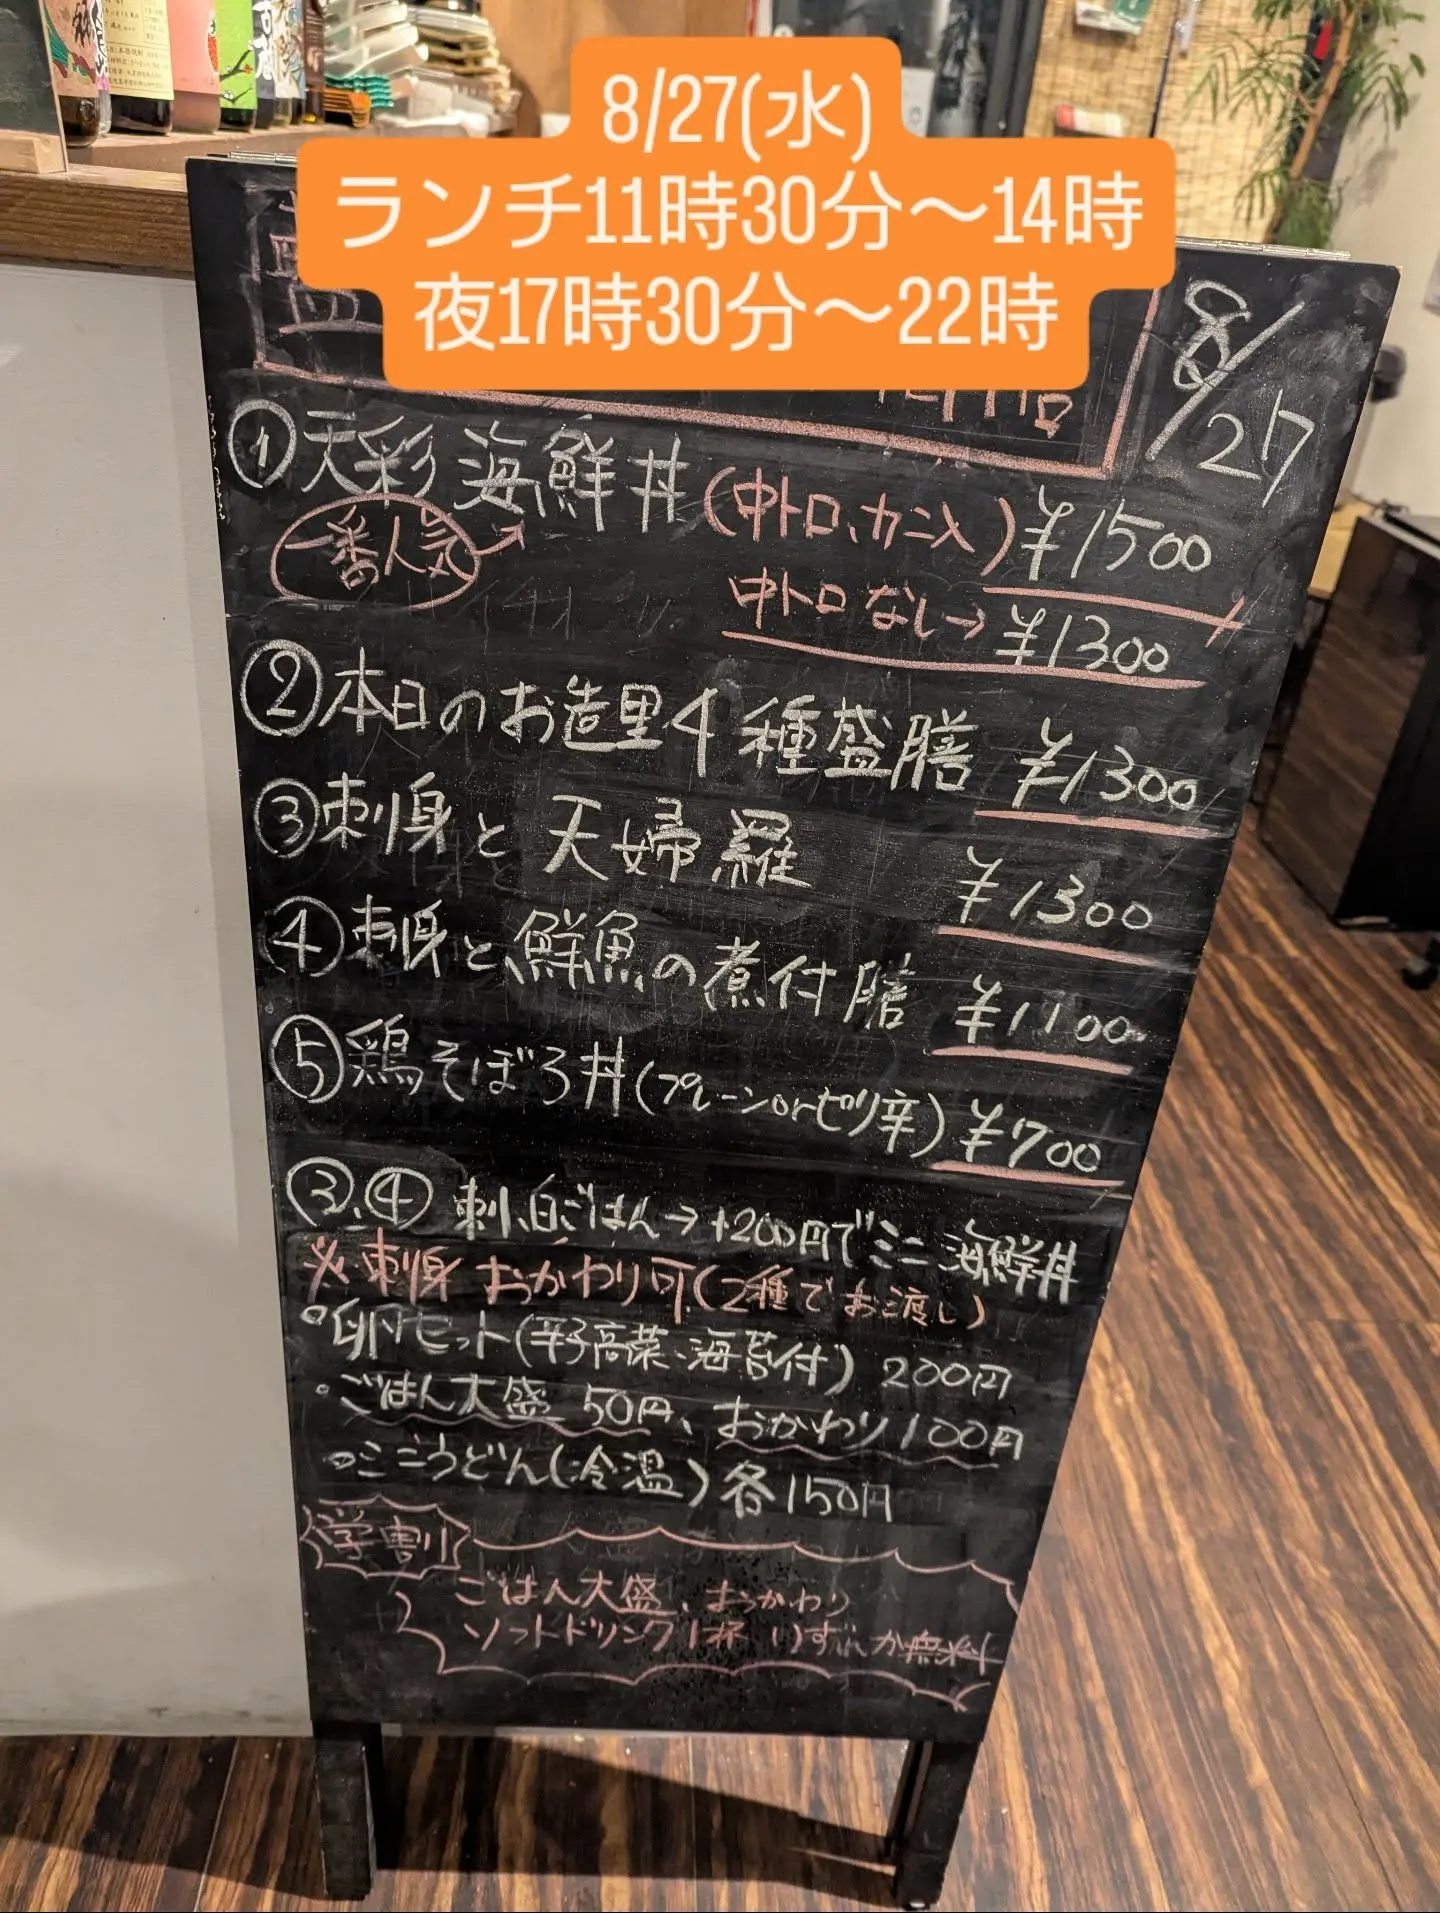 8/27(水)
ランチ11時30分〜14時
夜17時30分〜22時
8/27
①天彩海鮮丼(中トロ、カニ入)¥1500
一番人気→
中トロなし→¥1300
②本日のお造里4種盛膳 ¥1300
③刺身と天婦羅 ¥1300
④刺身と鮮魚の煮付膳 ¥1100
⑤鶏そぼろ丼(プレーンorピリ辛)¥700
③、④ 刺、白ごはん→+200円でミニ海鮮丼
※刺身おかわり可(2種でお渡し)
卵セット(辛子高菜、海苔付) 200円
ごはん大盛 50円、おかわり100円
ミニうどん(冷温)各150円
学割
ごはん大盛、おかわり
ソフトドリンク1杯 いずれか無料